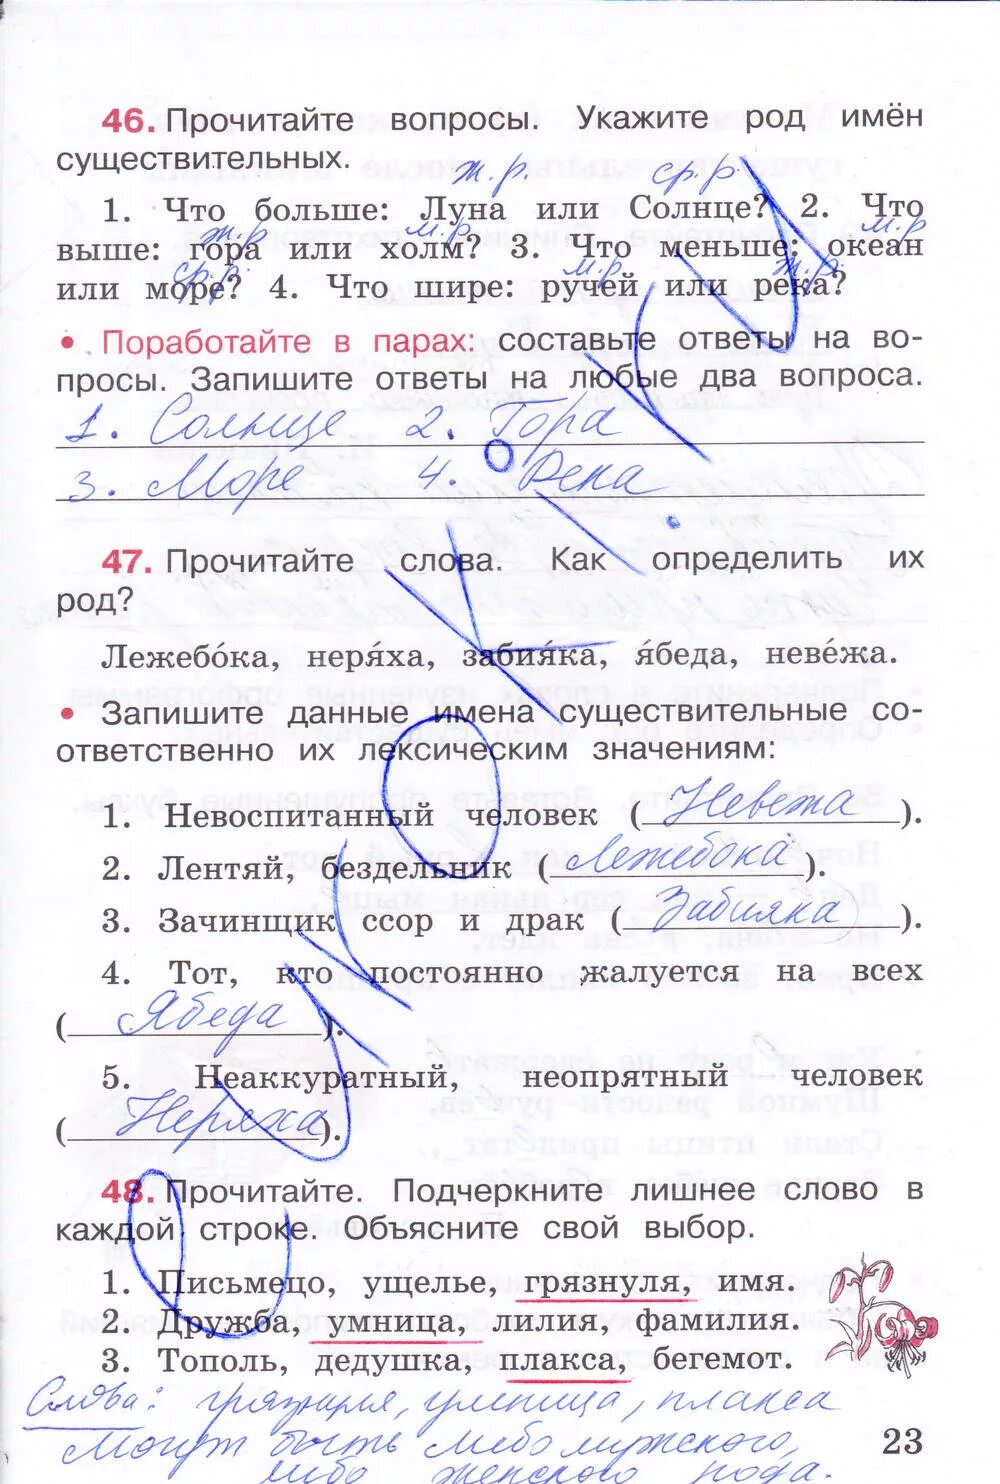 46. Прочитайте вопросы. Укажите род имён
существительных.
ж.р. ср.р.
1. Что больше: Луна или Солнце? 2. Что
ж.р м.р. м.р
выше: гора или холм? 3. Что меньше: океан
ср.р. м.р. ж.р.
или море? 4. Что шире: ручей или река?
• Поработайте в парах: составьте ответы на во-
просы. Запишите ответы на любые два вопроса.
1. Солнце 2. Гора
3. Море 4. Река
47. Прочитайте слова. Как определить их
род?
Лежебо́ка, неря́ха, забия́ка, я́беда, неве́жа.
• Запишите данные имена существительные со-
ответственно их лексическим значениям:
1. Невоспитанный человек (Невежа).
2. Лентяй, бездельник (Лежебока).
3. Зачинщик ссор и драк (Забияка).
4. Тот, кто постоянно жалуется на всех
(Ябеда).
5. Неаккуратный, неопрятный человек
(Неряха).
48. Прочитайте. Подчеркните лишнее слово в
каждой строке. Объясните свой выбор.
1. Письмецо, ущелье, грязнуля, имя.
2. Дружба, умница, лилия, фамилия.
3. Тополь, дедушка, плакса, бегемот.
Слова: грязнуля, умница, плакса
могут быть либо мужского,
либо женского рода.
23